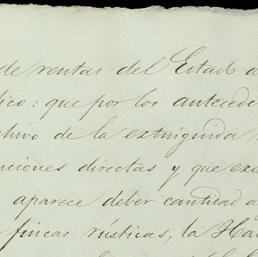 de rentas del Estado a
ico: que por los antecede
chivo de la extinguida
nciones directas y que exa
aparece deber cantidad a
fincas rústicas, la Ha